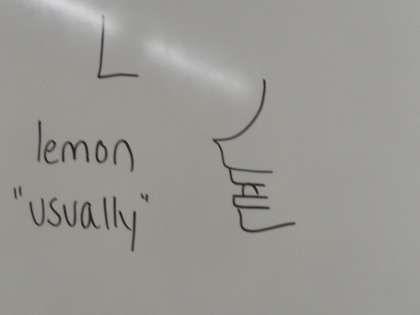 L
lemon
"usually"